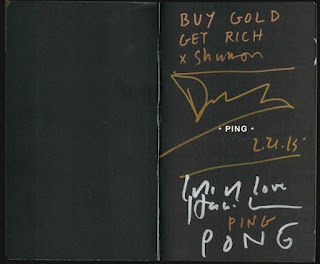 BUY GOLD
GET RICH
x Shannon
* PING *
2.21.15
love
PING
PONG